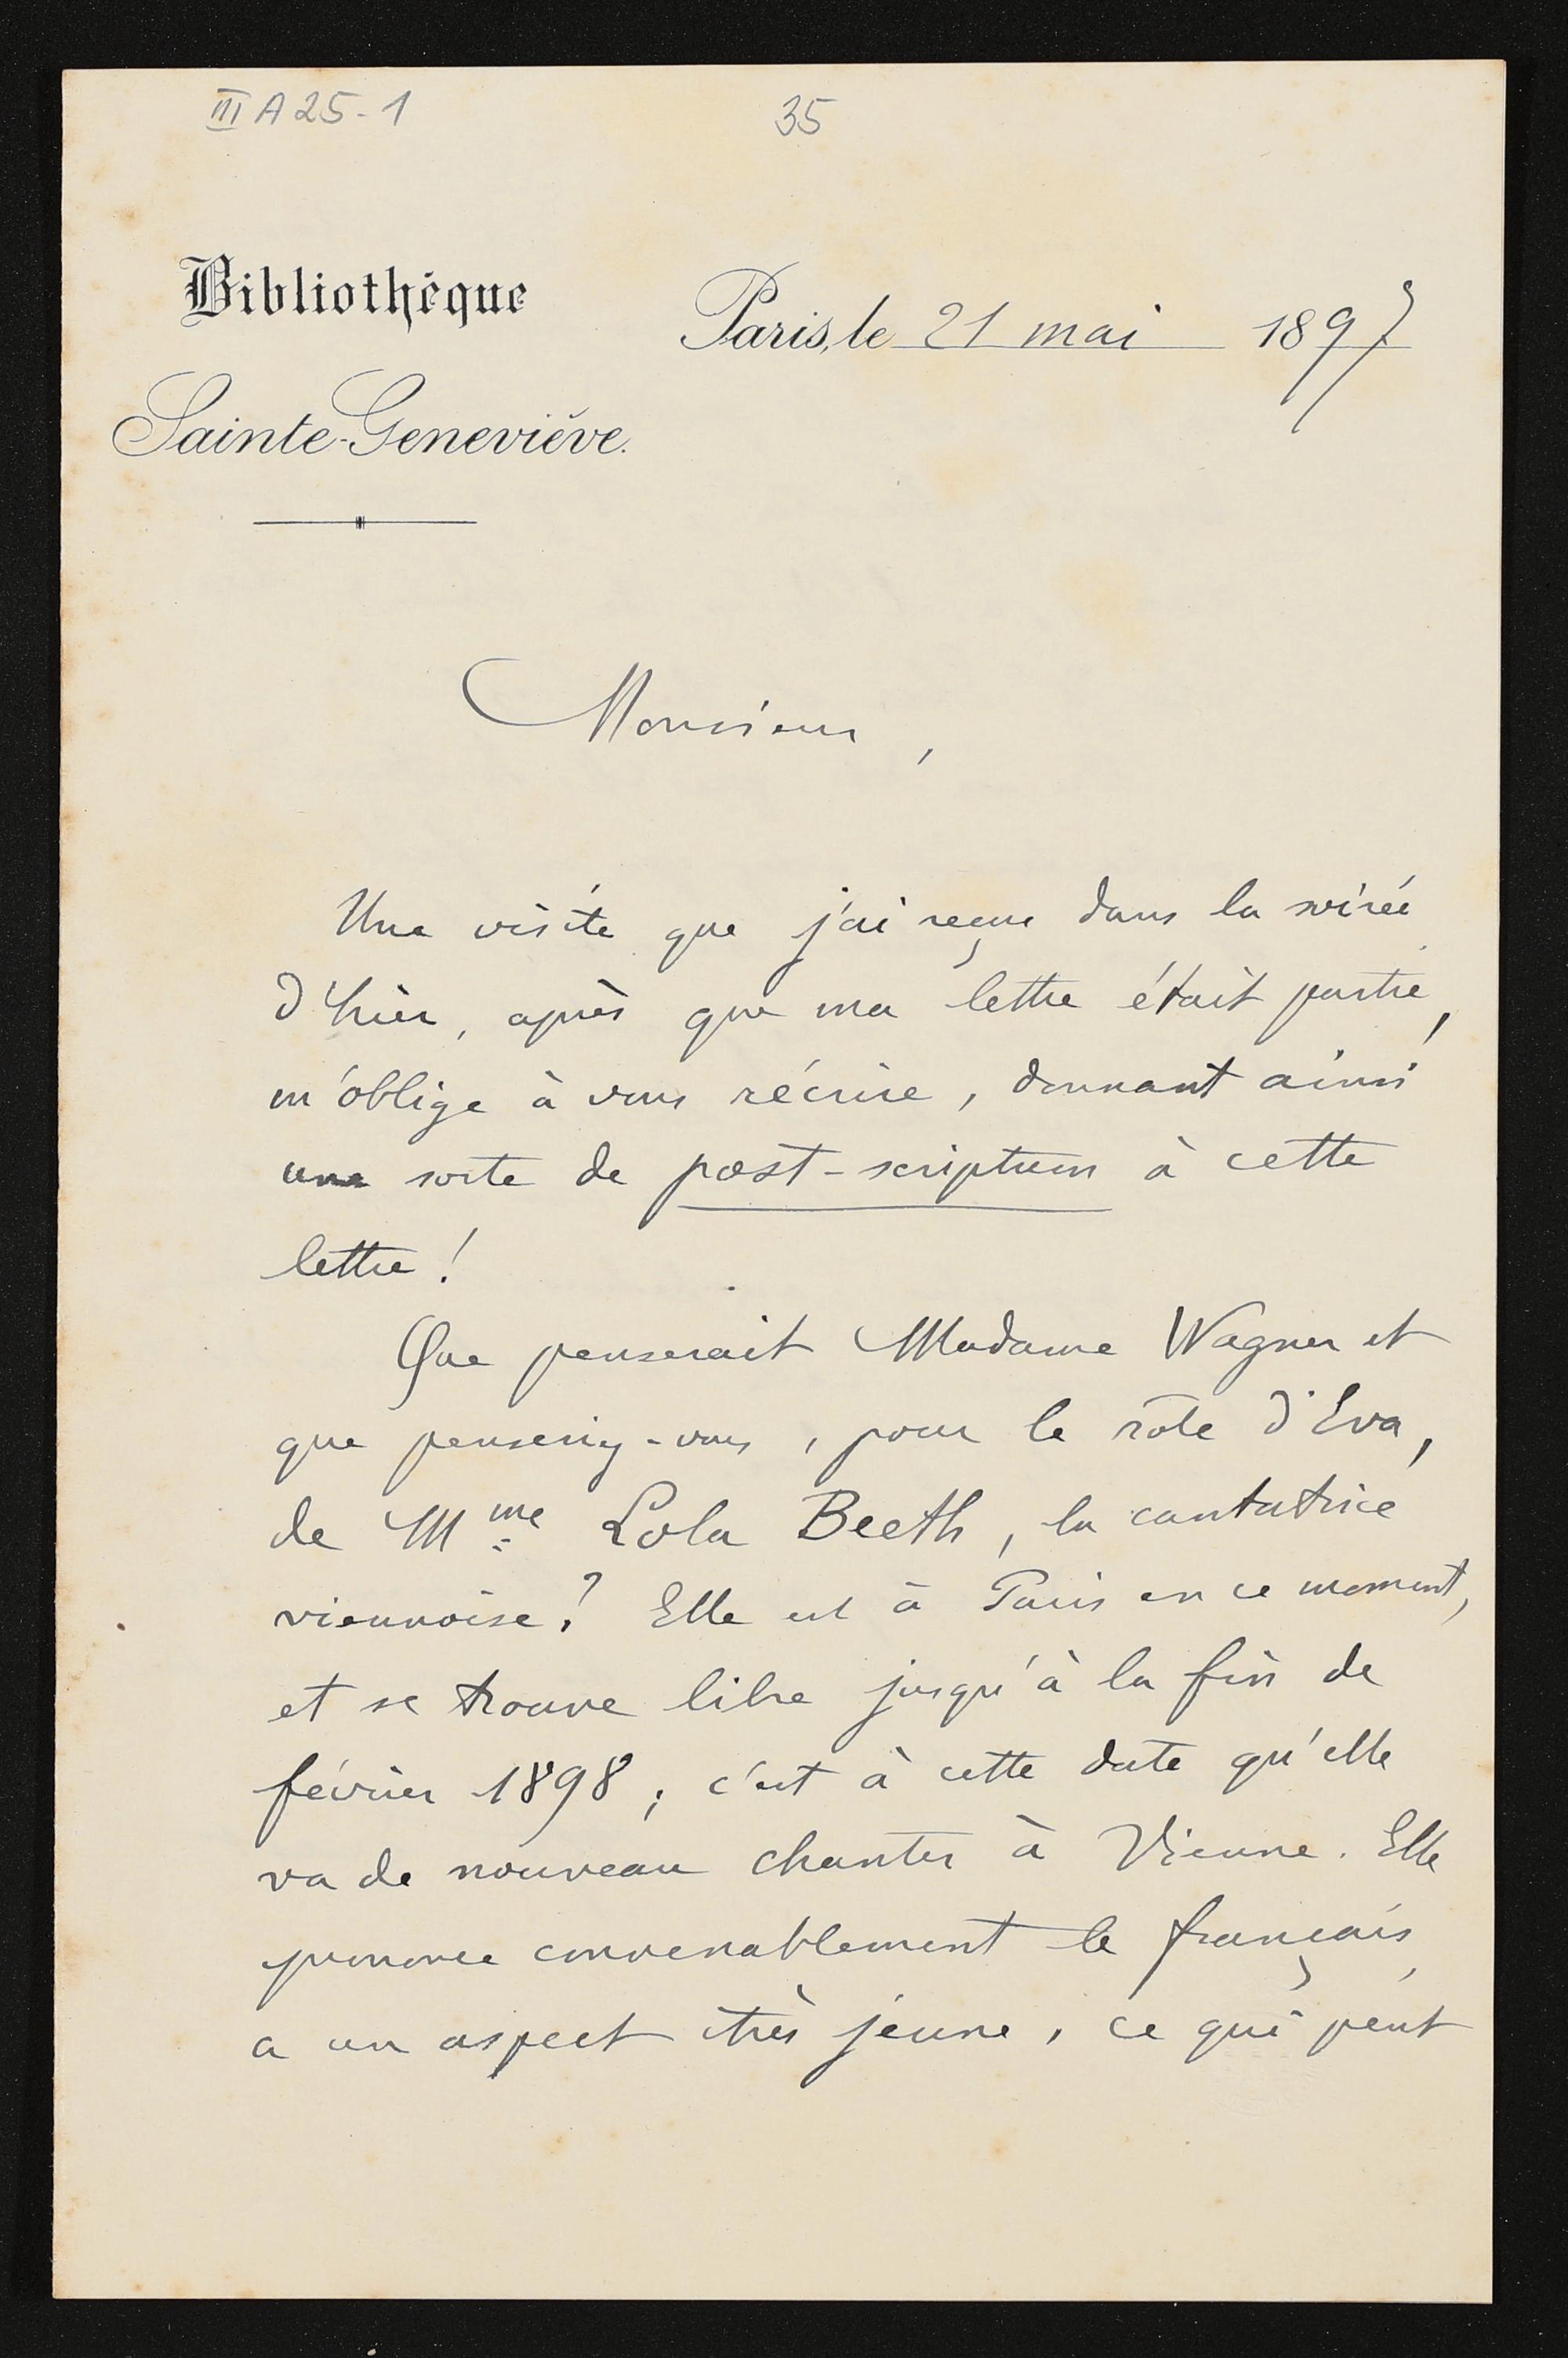 III A 25-1
35
Bibliothèque
Sainte-Geneviève.
Paris, le 21 mai 1897
Monsieur,
Une visite que j'ai reçue dans la soirée
d'hier, après que ma lettre était partie,
m'oblige à vous récrire, donnant ainsi
une sorte de post-scriptum à cette
lettre!
Que penserait Madame Wagner et
que penseriez-vous, pour le rôle d'Eva,
de Mme Lola Beeth, la cantatrice
viennoise? Elle est à Paris en ce moment,
et se trouve libre jusqu'à la fin de
février 1898; c'est à cette date qu'elle
va de nouveau chanter à Vienne. Elle
prononce convenablement le français,
a un aspect très jeune, ce qui peut